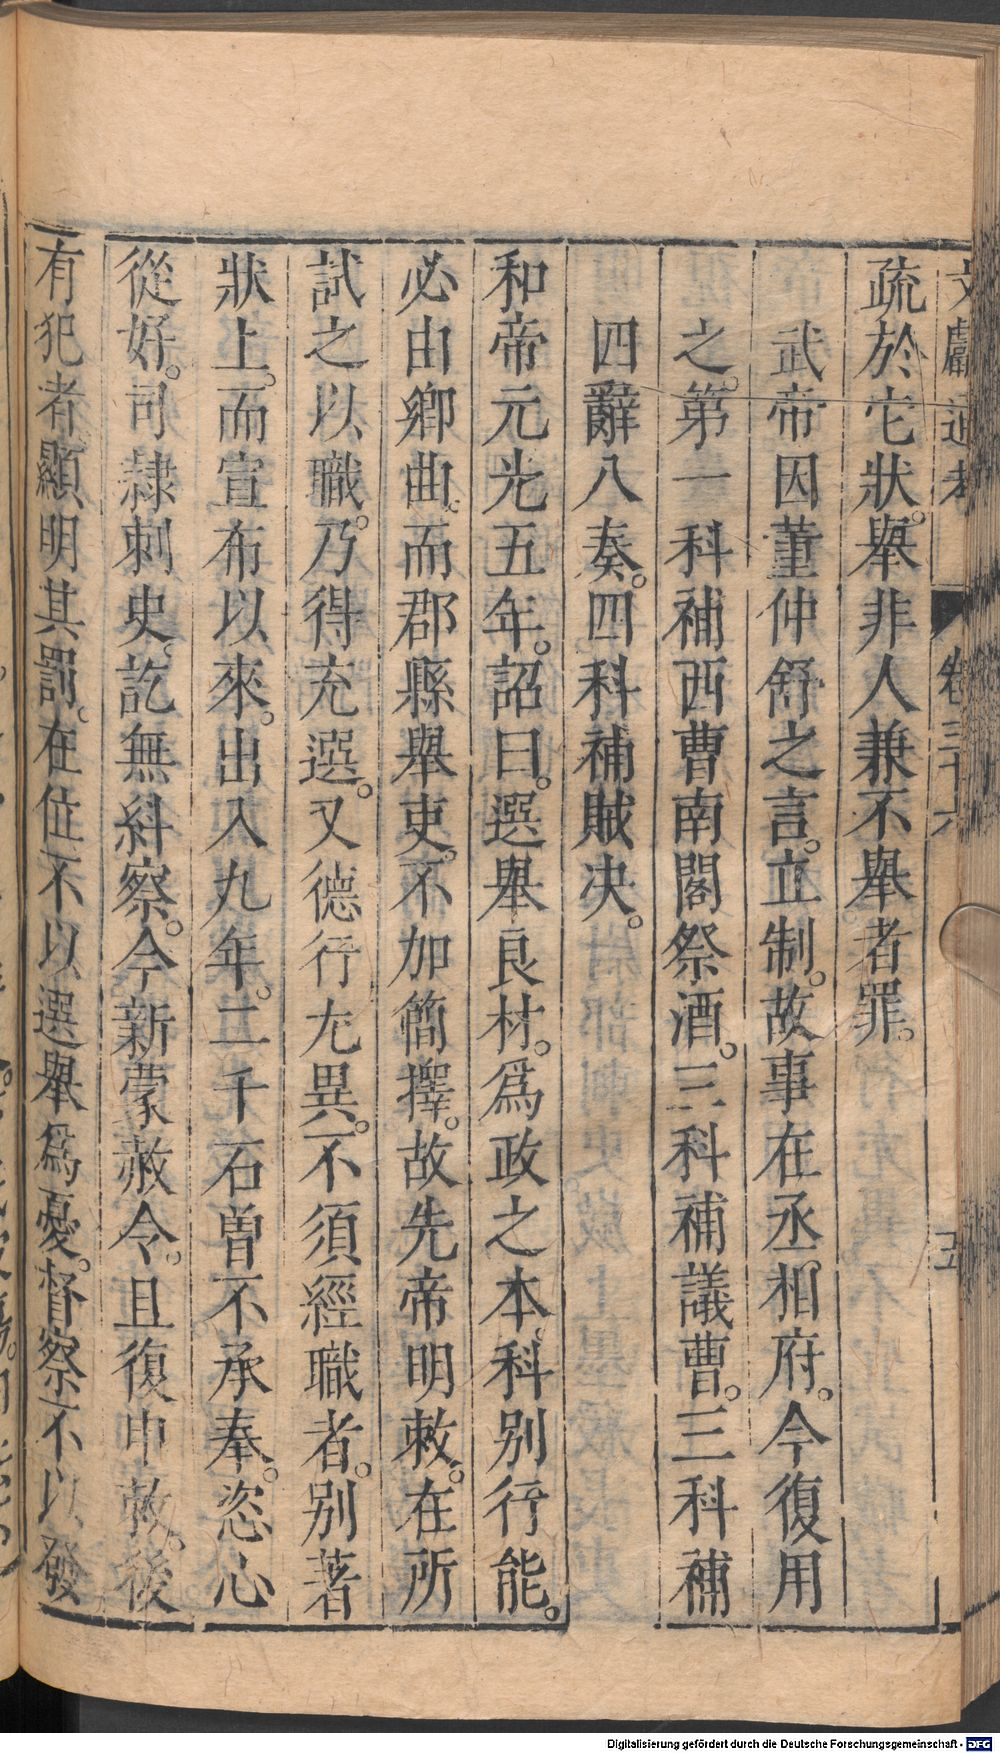 文獻通考　卷三十六　五
疏於它狀。舉非人兼不舉者罪。
武帝因董仲舒之言。立制。故事在丞相府。今復用
之。第一科補西曹南閣祭酒。二科補議曹。三科補
四辭八奏。四科補賊決。
和帝元光五年。詔曰。選舉良材。爲政之本。科別行能。
必由鄉曲。而郡縣舉吏。不加簡擇。故先帝明敕。在所
試之以職。乃得充選。又德行尤異。不須經職者。別著
狀上。而宣布以來。出入九年。二千石曾不承奉。恣心
從好。司隸刺史。訖無糾察。今新蒙赦令。且復申敕。後
有犯者顯明其罰。在位不以選舉爲憂。督察不以發
Digitalisierung gefördert durch die Deutsche Forschungsgemeinschaft - DFG